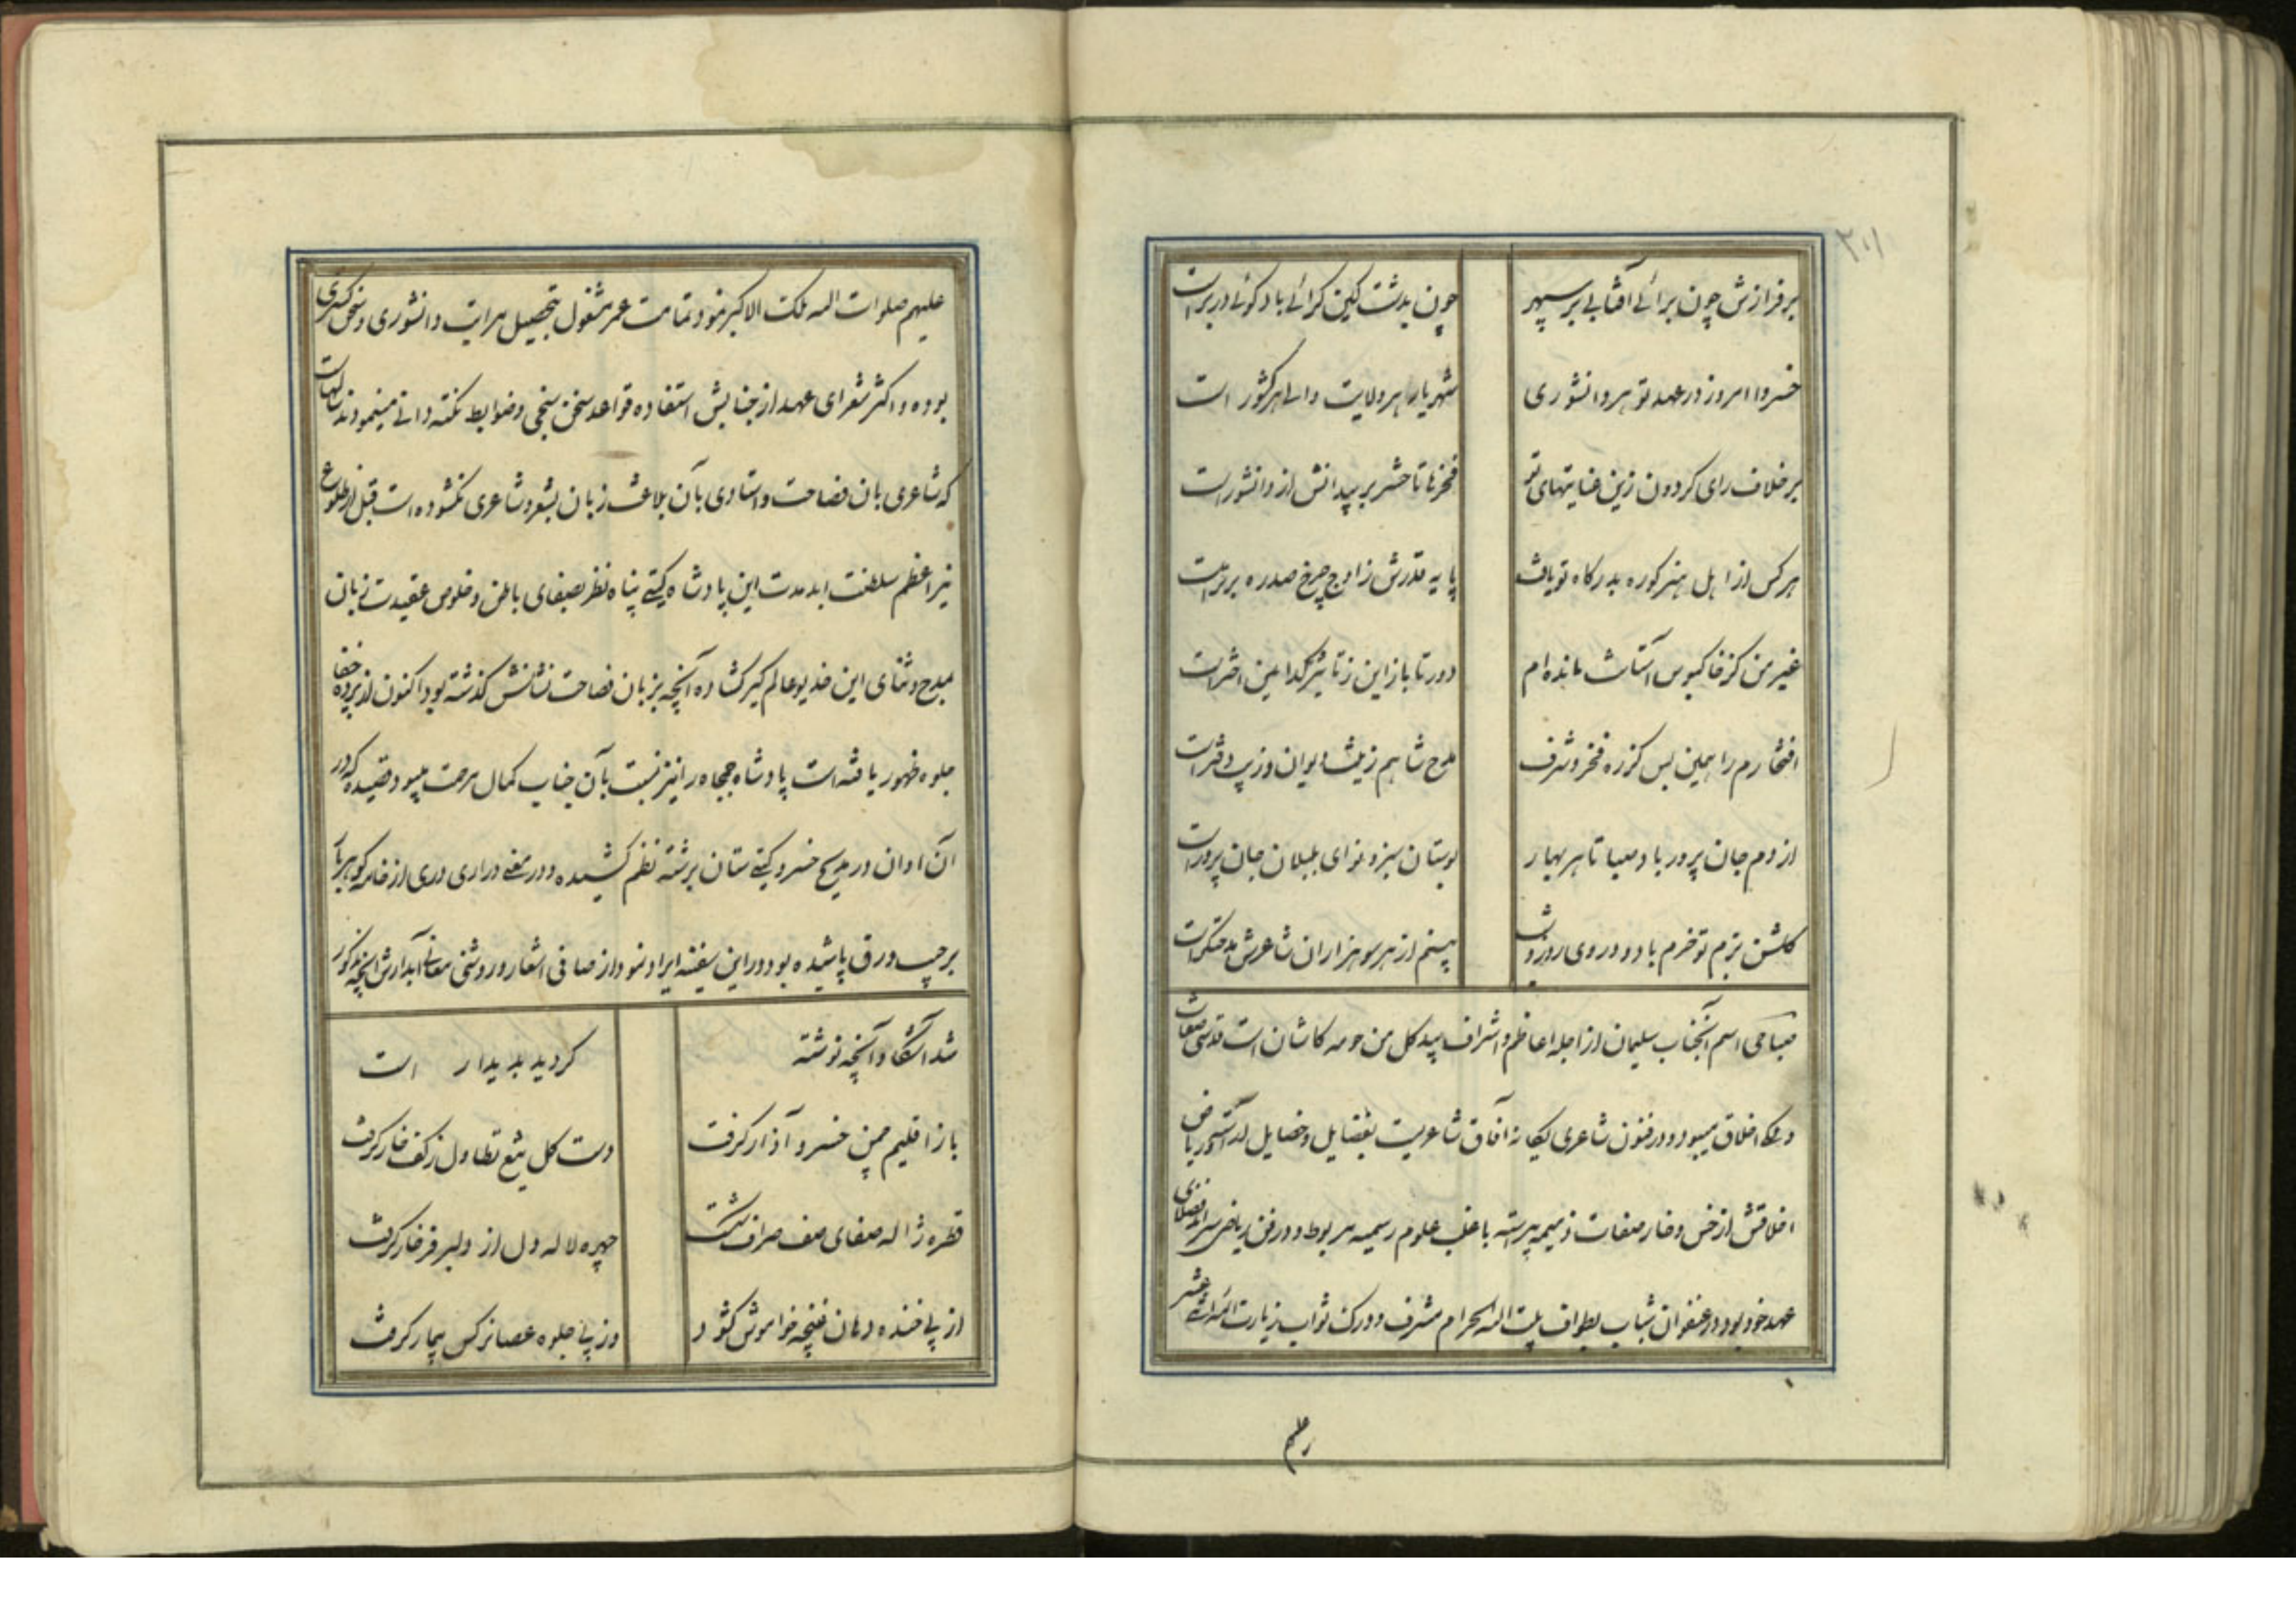 ۲۰۱
برفرازش چون برائے آفتابے بر سپهر چون بدشت کین گرائے باد کوئے در بر است
خسروا امروز در عهد تو هر دانشوری شهریار هر ولایت والے هر کشور است
برخلاف رای کردون زین عنایتهای تو فخرها تا حشر بر بیدانش از دانشور است
هر کس از اهل هنر کو ره بدرکاه تو یافت پایه قدرش ز اوج چرخ صد ره برتر است
غیر من کز خاکبوس آستانت مانده ام دور تا باز این ز تاثیر کدامین اختر است
افتخارم را همین بس کز ره فخر و شرف مدح شاهم زینت دیوان و زیب دفتر است
از دم جان پرور باد صبا تا هر بهار بوستان سبز و نوای بلبلان جان پرور است
کلشن بزم تو خرم باد و در وی روز و شب بینم از هر سو هزاران شاعرش مدحتکر است
صباحی اسم آنجناب سلیمان از اجله اعاظم و اشراف بیدکل من حومه کاشان است قدسی صفات
و ملک اخلاق میبود و در فنون شاعری یکانه آفاق شاعریست بفضایل و خصایل آراسته و ریاض
اخلاقش از خس و خار صفات ذمیمه پیراسته باغلب علوم رسمیه مربوط و در فن ریاضی سرآمد فضلای
عهد خود بود در عنفوان شباب بطواف بیت الله الحرام مشرف و درک ثواب زیارت ائمه اثنے عشر
علیهم
علیهم صلوات الله ملک الاکبر نمود تمامت عمر مشغول بتحصیل مراتب دانشوری و سخن کستری
بوده و اکثر شعرای عهد از جنابش استفاده قواعد سخن سنجی و ضوابط نکته دانے مینمودند سالهاست
که شاعری بان فصاحت و استادی بآن بلاغت زبان بشعر و شاعری نکشوده است قبل از طلوع
نیر اعظم سلطنت ابد مدت این پادشاه کیتے پناه نظر بصفای باطن و خلوص عقیدت زبان
بمدح و ثنای این خدیو عالم کیر کشاده آنچه بزبان فصاحت نشانش کذشته بود اکنون از پرده خفا
جلوه ظهور یافته است پادشاه جمجاه را نیز نسبت بآن جناب کمال مرحمت میبود قصیده که در
آن اوان در مدیح خسرو کیتے ستان برشته نظم کشیده و در معنے دراری دری از خامه کوهربار
بر جیب ورق پاشیده بود در این سفینه ایراد نمود از صافی اشعار و روشنی معانے آبدارش آنچه مذکور
شد آشکار و آنچه نوشته کردید پدیدار است
باز اقلیم چمن خسرو آذار کرفت دست کل تیغ تطاول ز کف خار کرفت
قطره ژاله صفای صف صراف شکست چهره لاله دل از دلبر فرخار کرفت
از پے خنده دهان غنچه خواموش کشود وز پے جلوه عصا نرکس بیمار کرفت